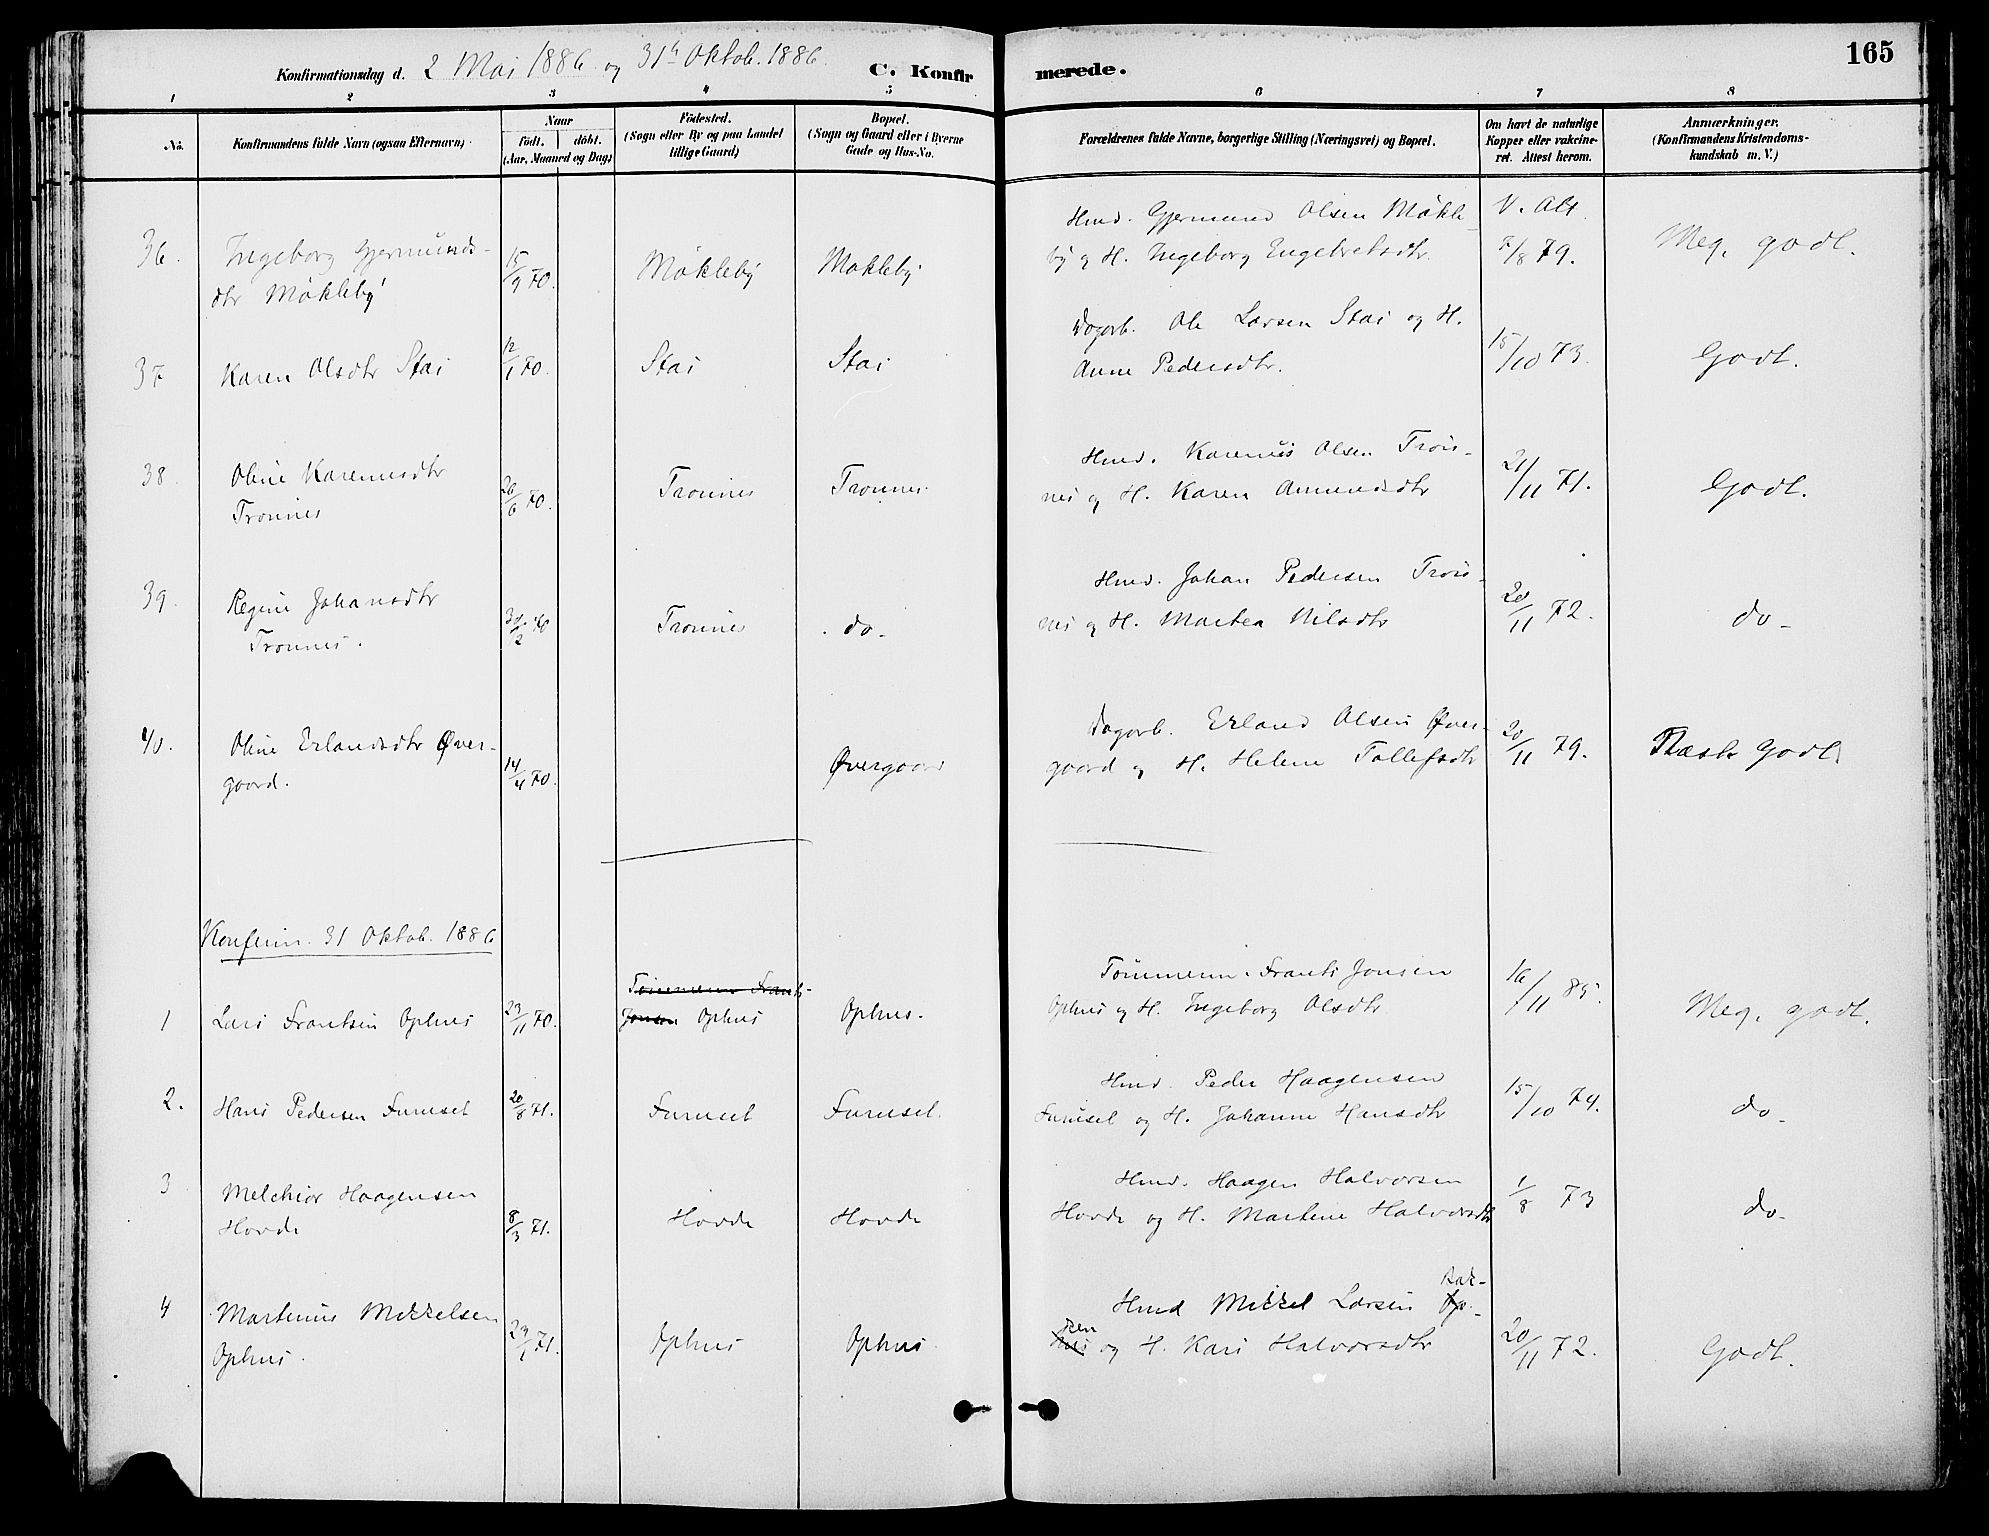 165
Konfirmationsdag d. 2 Mai 1886 og 31te Oktob. 1886.
C. Konfirmerede.
1 2 3 4 5 6 7 8
No.
Konfirmandens fulde Navn (ogsaa Efternavn).
Naar
födt. döbt.
(Aar, Maaned og Dag)
Födested.
(Sogn eller By og paa Landet
tillige Gaard)
Bopæl.
(Sogn og Gaard eller i Byerne
Gade og Hus-No.
Forældrenes fulde Navne, borgerlige Stilling (Næringsvei) og Bopæl.
Om havt de naturlige
Kopper eller vakcine-
ret. Attest herom.
Anmærkninger.
(Konfirmandens Kristendoms-
kundskab m. V.)
36. Ingeborg Gjermunds-
dtr Mökleby 15/9 70. Mökleby Mökleby
Hmd. Gjermund Olsen Mökle-
by og H. Ingeborg Engebretsdtr. V. Att. 7/8 79. Meg. godt.
37 Karen Olsdtr Stai 12/1 70. Stai Stai
Dagarb. Ole Larsen Stai og H.
Anne Pedersdtr. 15/10 73. Godt.
38 Oline Karenusdtr
Tronnes 26/6 70. Tronnes Tronnes.
Hmd. Karenus Olsen Tron-
nes og H. Karen Amundsdtr 21/11 71. Godt.
39. Regine Johansdtr
Tronnes. 30/12 70 Tronnes do.
Hmd. Johan Pedersen Tron-
nes og H. Martea Nilsdtr 20/11 72. do.
40. Oline Erlandsdtr Øver-
gaard. 14/4 70. Øvergaard
Dagarb. Erland Olsen Øver-
gaard og H. Helene Tollefsdtr 20/11 79. Næsten Godt
Konfirm. 31 Oktob. 1886
1 Lars Frantsen Ophus 23/11 70. Tömmerm Frants
Jonsen Ophus Ophus.
Tömmerm. Frants Jonsen
Ophus og H. Ingeborg Olsdtr 16/11 85. Meg. godt.
2. Hans Pedersen Furuset 20/8 71. Furuset Furuset.
Hmd. Peder Haagensen
Furuset og H. Johanne Hansdtr 15/10 74. do.
3 Melchior Haagensen
Hovde 8/3 71. Hovde Hovde
Hmd. Haagen Halvorsen
Hovde og H. Martine Halvorsdtr 1/8 73 do.
4 Martinus Mikkelsen
Ophus. 29/1 71. Ophus Ophus.
Hmd Mikkel Larsen Op-
hus og H. Kari Halvorsdtr 20/11 72. Godt.